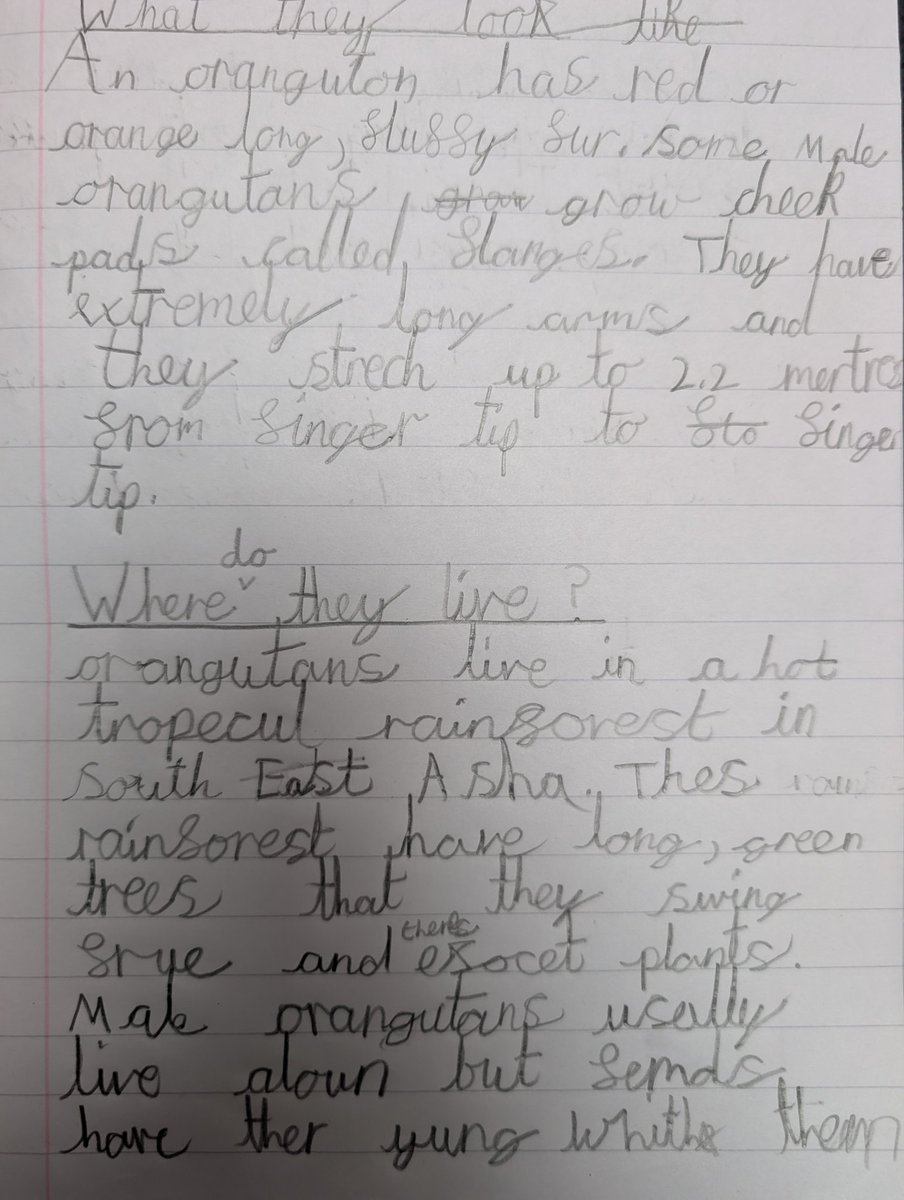 What they look like
An oranguton has red or
orange long, fluffy fur. some male
orangutans, grow grow cheek
pads called, flanges. They have
extremely long arms and
they strech up to 2.2 mertres
from finger tip to fto finger
tip.
do
Where ˅ they live?
orangutans live in a hot
tropecul rainforest in
south East Asha. Thes rain
rainforest have long, green
trees that they swing
frye and theres exocet plants.
Male orangutans useally
live aloun but femals
have ther yung whith them